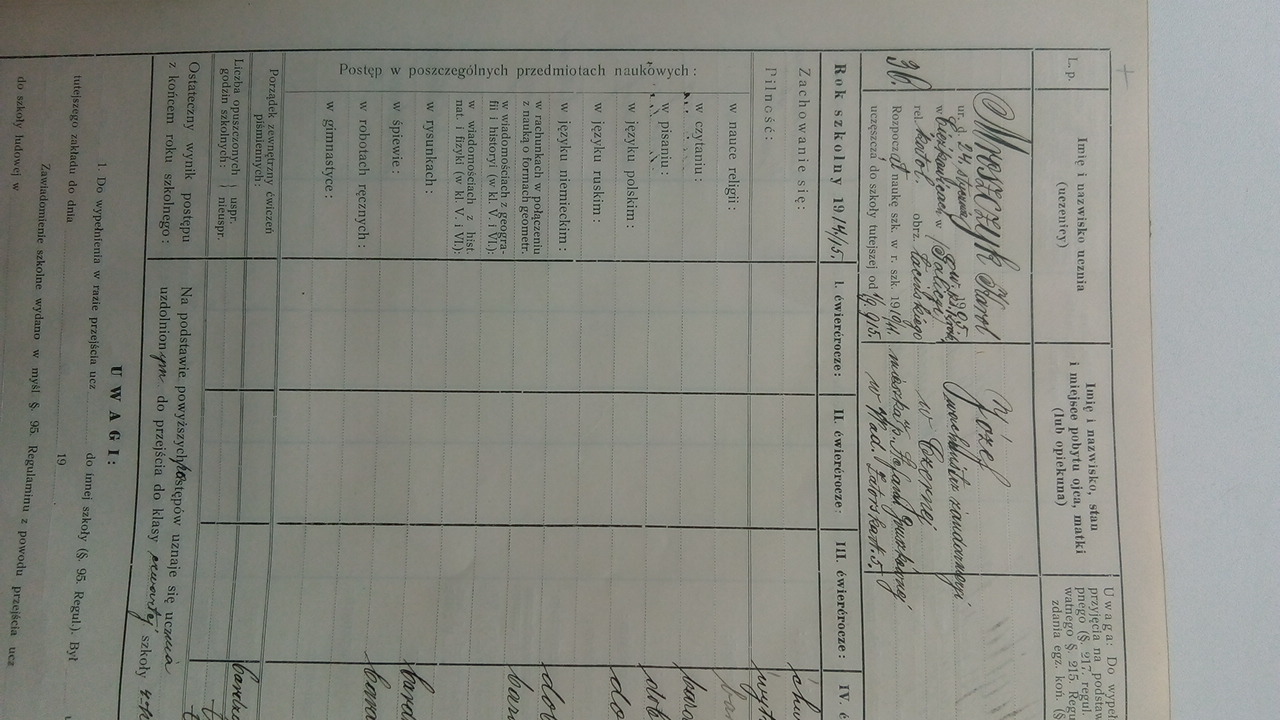 L. p.
Imię i nazwisko ucznia
(uczenicy)
Imię i nazwisko, stan
i miejsce pobytu ojca, matki
(lub opiekuna)
Uwaga: Do wypeł
przyjęcia na podsta
pnego (§. 217. regul.
watnego §. 215. Regu
zdania egz. koń. (§
36.
Mroszczyk Karol
ur. d. 24. stycznia 1905
w w Galicyi
rel. katol. obrz. łacińskiego
Rozpoczął naukę szk. w r. szk. 1910/11.
uczęszcza do szkoły tutejszej od 1/9 15.
Józef
w Czernej
mieszka p.
w Wad.
Rok szkolny 1914/15.
I. ćwierćrocze:
II. ćwierćrocze:
III. ćwierćrocze:
IV. ć
Zachowanie się:
Pilność:
Postęp w poszczególnych przedmiotach naukowych:
w nauce religii:
w czytaniu:
w pisaniu:
w języku polskim:
w języku ruskim:
w języku niemieckim:
w rachunkach w połączeniu
z nauką o formach geometr.
w wiadomościach z geogra-
fii i historyi (w kl. V. i VI):
w wiadomościach z hist.
nat. i fizyki (w kl. V. i VI):
w rysunkach:
w śpiewie:
w robotach ręcznych:
w gimnastyce:
Porządek zewnętrzny ćwiczeń
piśmiennych:
Liczba opuszczonych } uspr.
godzin szkolnych: } nieuspr.
Ostateczny wynik postępu
z końcem roku szkolnego:
Na podstawie powyższych postępów uznaje się ucznia
uzdolnionym do przejścia do klasy czwartej szkoły
UWAGI:
1. Do wypełnienia w razie przejścia ucz do innej szkoły (§. 95. Regul.). Był
tutejszego zakładu do dnia 19
Zawiadomienie szkolne wydano w myśl §. 95. Regulaminu z powodu przejścia ucz
do szkoły ludowej w